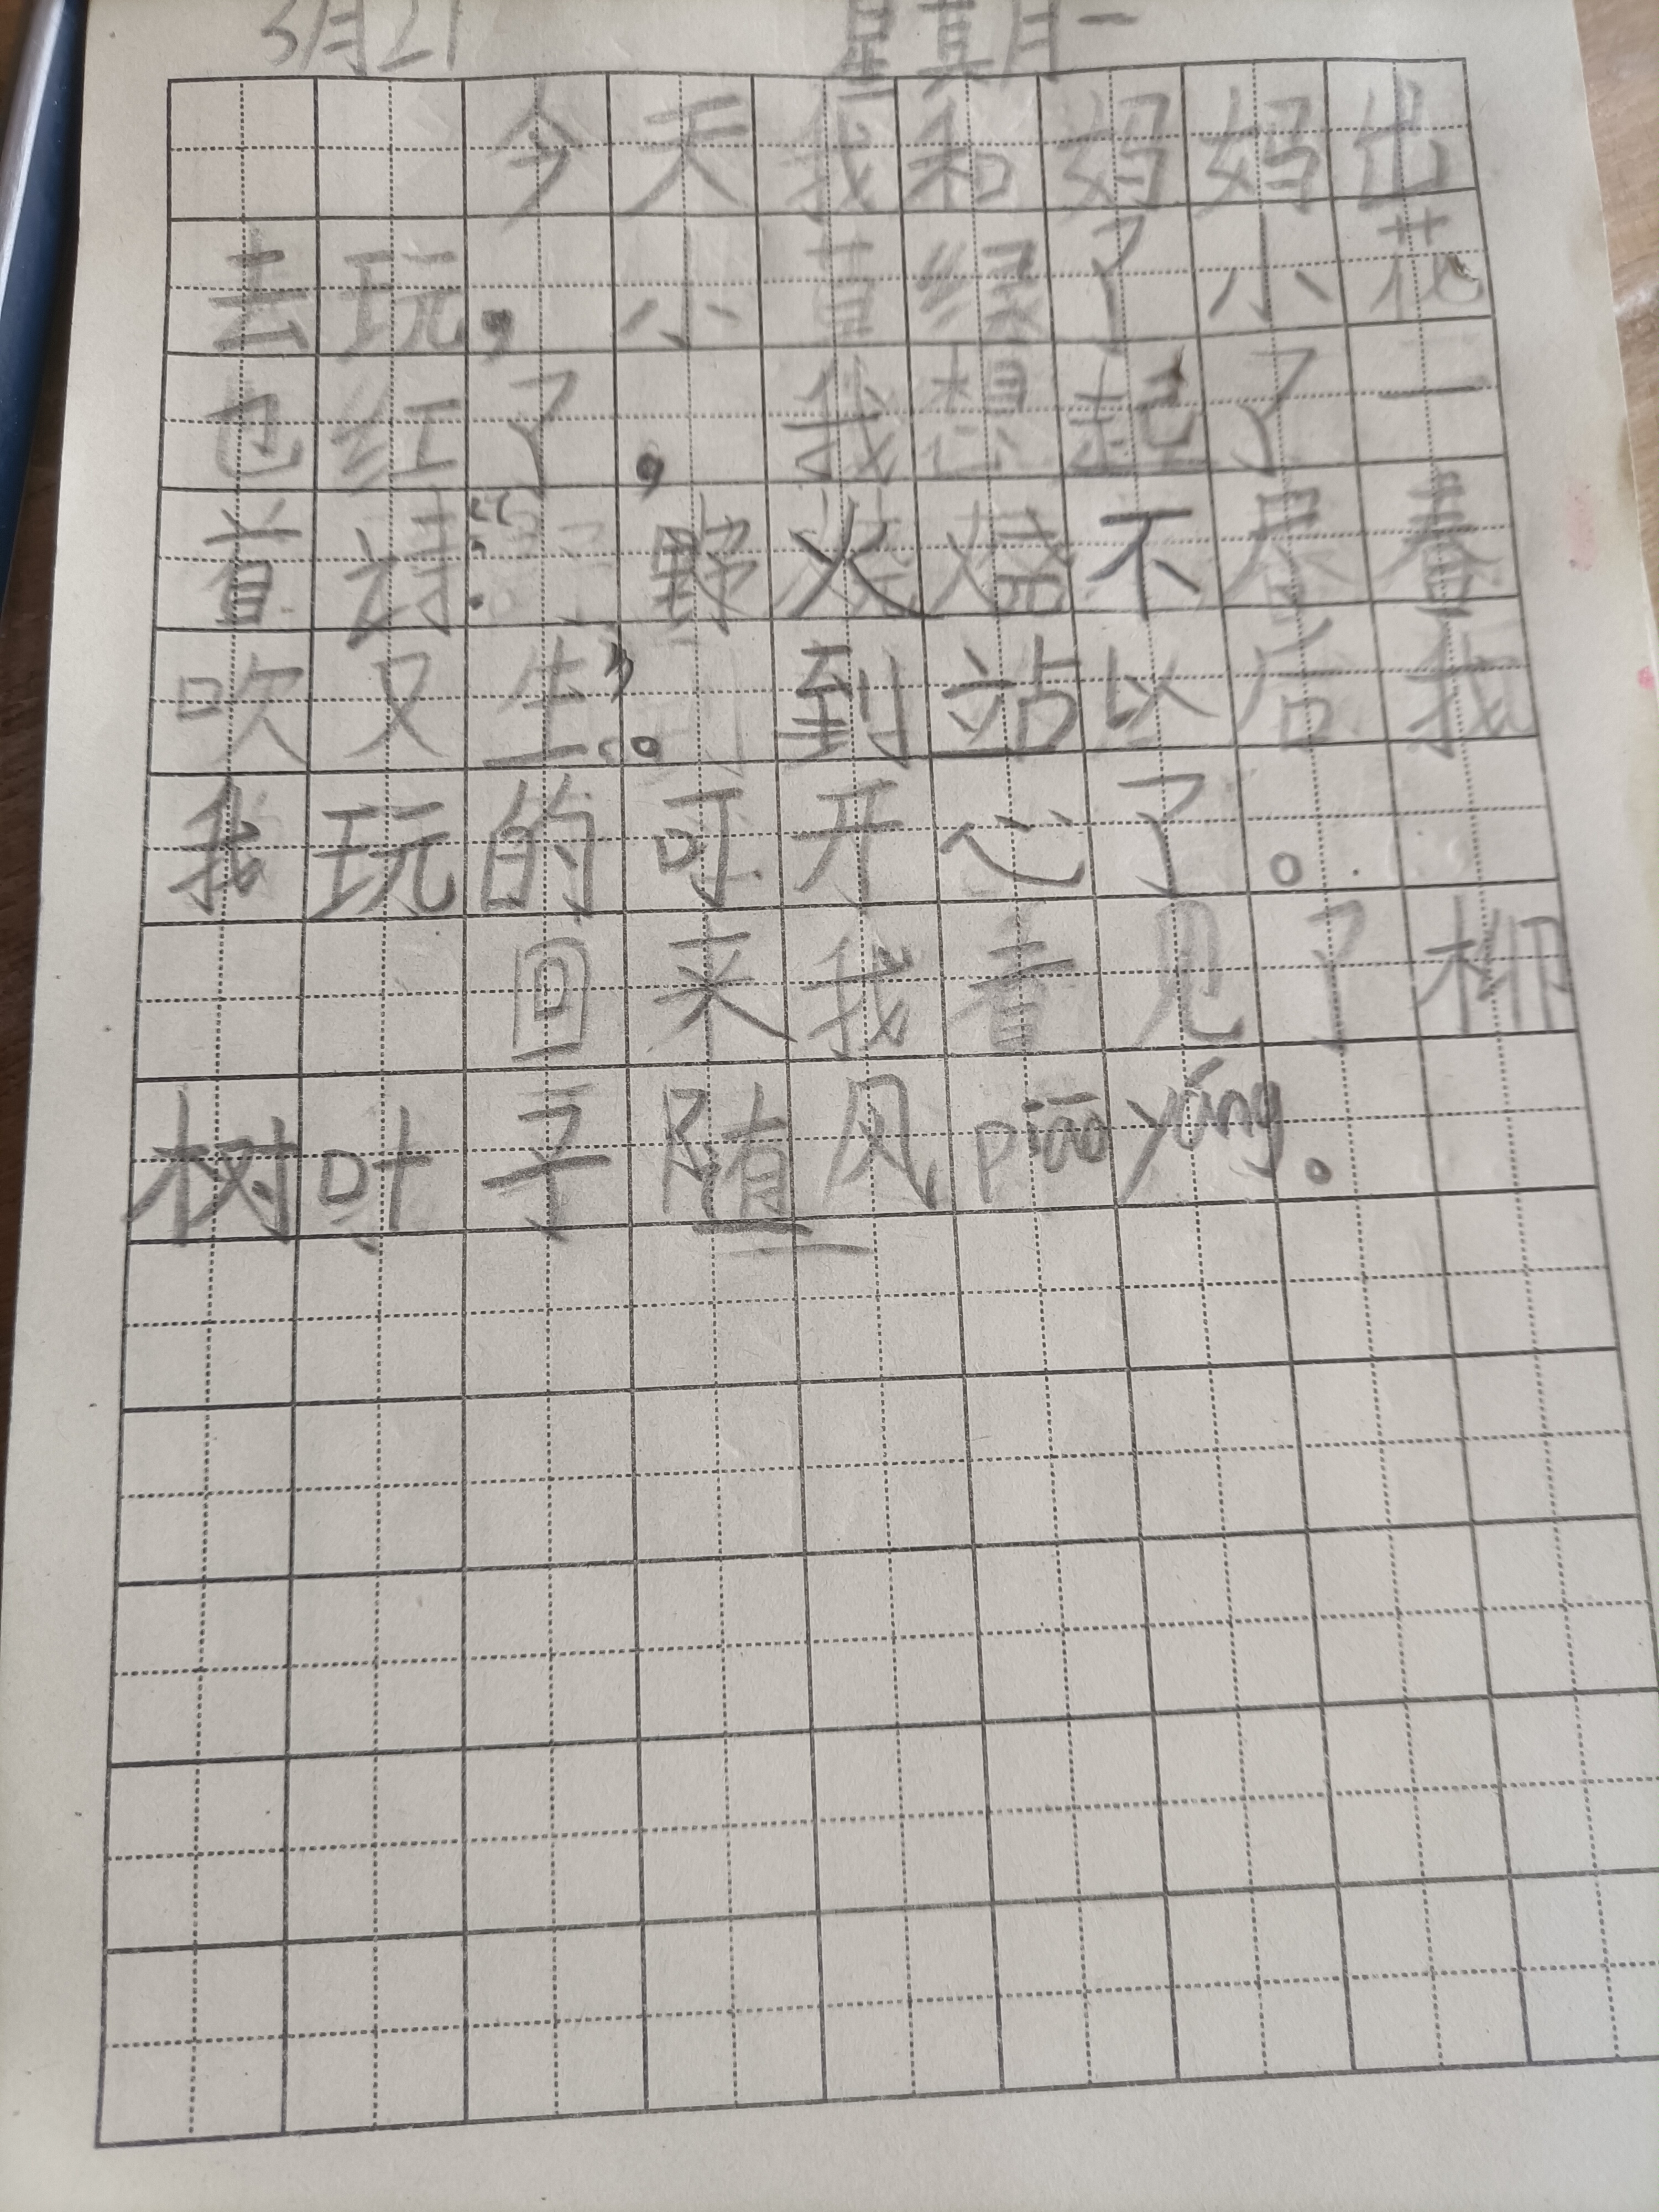 3月21 星其月一
今天我和妈妈出
去玩，小草绿了小花
也红了，我想起了一
首诗：“野火烧不尽春
吹又生”。到站以后我
我玩的可开心了。
回来我看见了柳
树叶子随风piāo yáng。